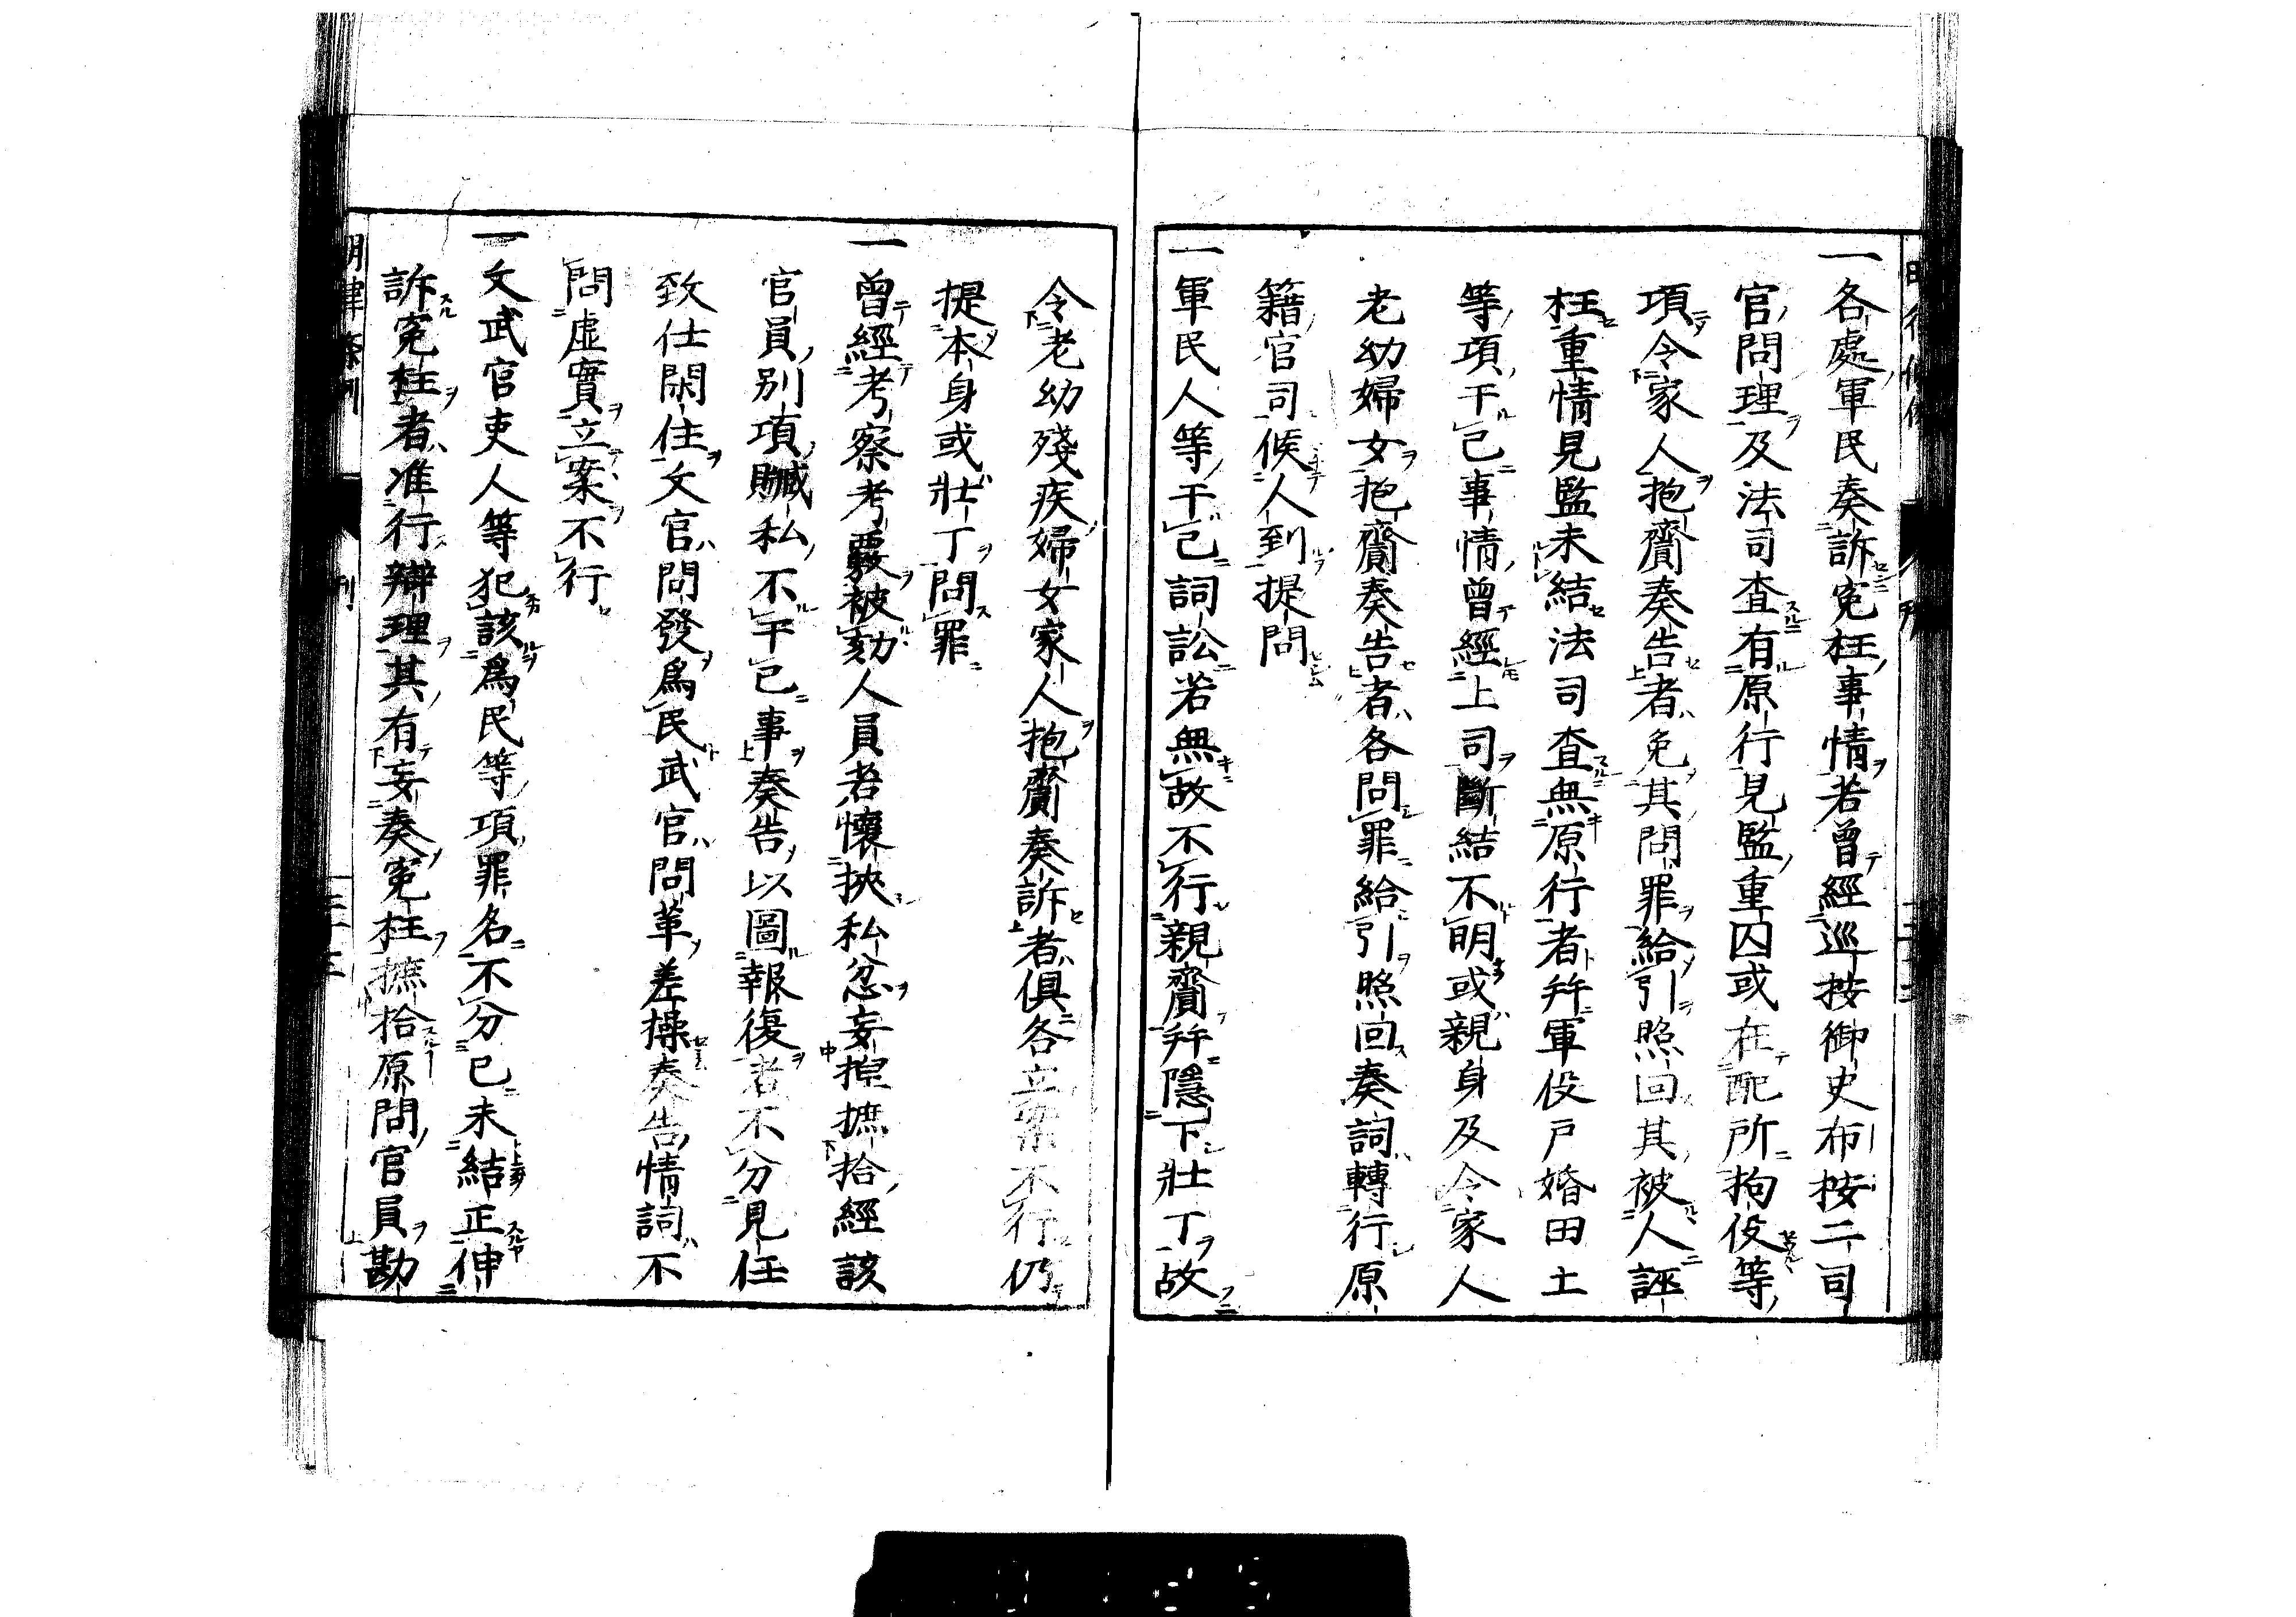 一各處軍民奏訴寃枉事情若曾經巡按御史布按二司
官問理及法司査有原行見監重囚或在配所拘役等
項令家人抱齎奏告者免其問罪給引照回其被人誣
枉重情見監未結法司査無原行者并軍役戸婚田土
等項干己事情曾經上司斷結不明或親身及令家人
老幼婦女抱齎奏告者各問罪給引照回奏詞轉行原
籍官司候人到提問
一軍民人等干己詞訟若無故不行親齎并隱下壯丁故
令老幼殘疾婦女家人抱齎奏訴者俱各立案不行仍
提本身或壯丁問罪
一曾經考察考覈被劾人員若懷挾私忿妄揑摭拾經該
官員別項贓私不干己事奏告以圖報復者不分見任
致仕閑住文官問發爲民武官問革差操奏告情詞不
問虛實立案不行
一文武官吏人等犯該爲民等項罪名不分已未結正伸
訴寃枉者准行辯理其有妄奏寃枉摭拾原問官員勘
明律條例